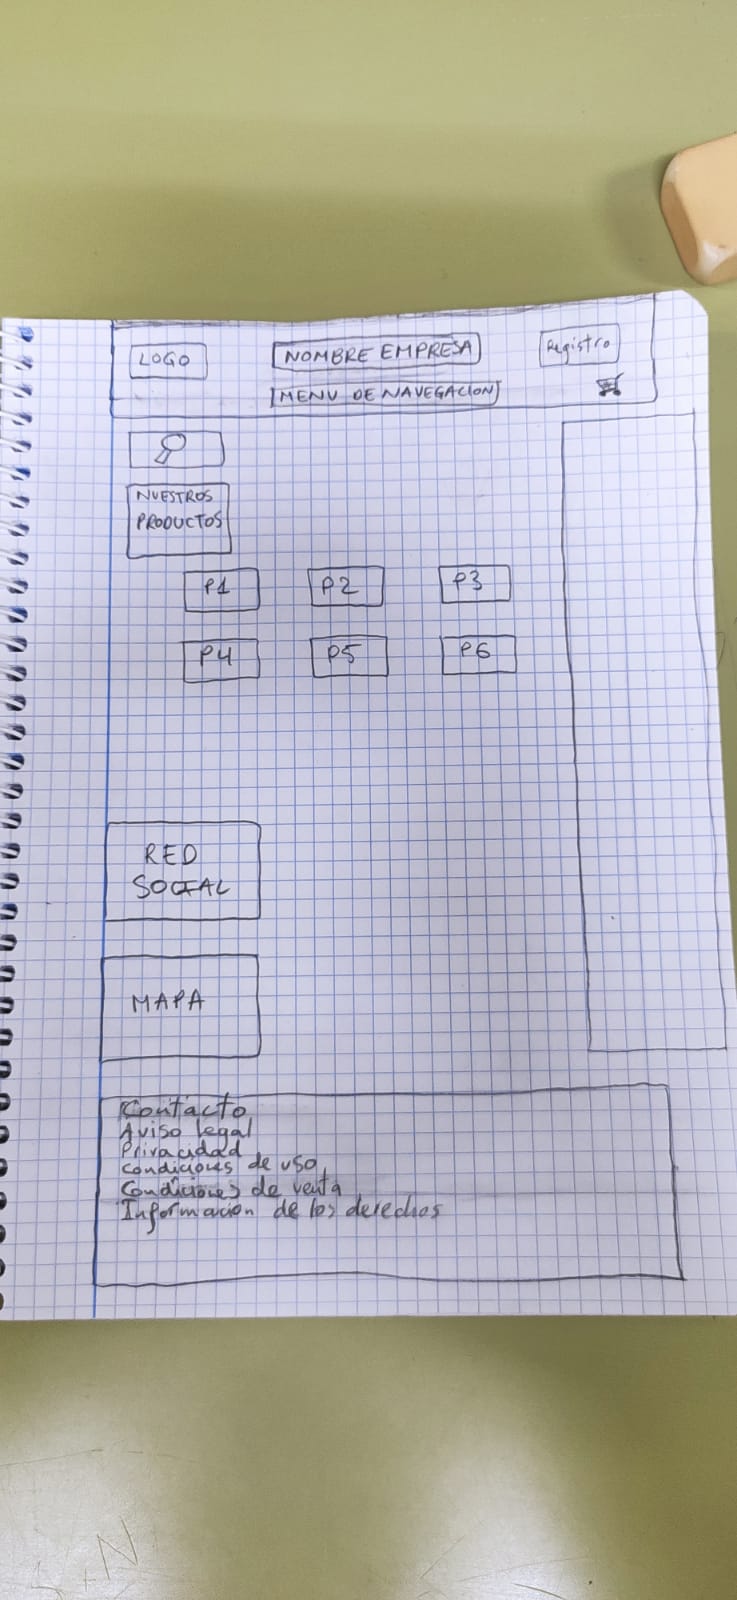 LOGO
NOMBRE EMPRESA
Registro
MENU DE NAVEGACION
NUESTROS
PRODUCTOS
P1
P2
P3
P4
P5
P6
RED
SOCIAL
MAPA
Contacto
Aviso legal
Privacidad
Condiciones de uso
Condiciones de venta
Informacion de los derechos